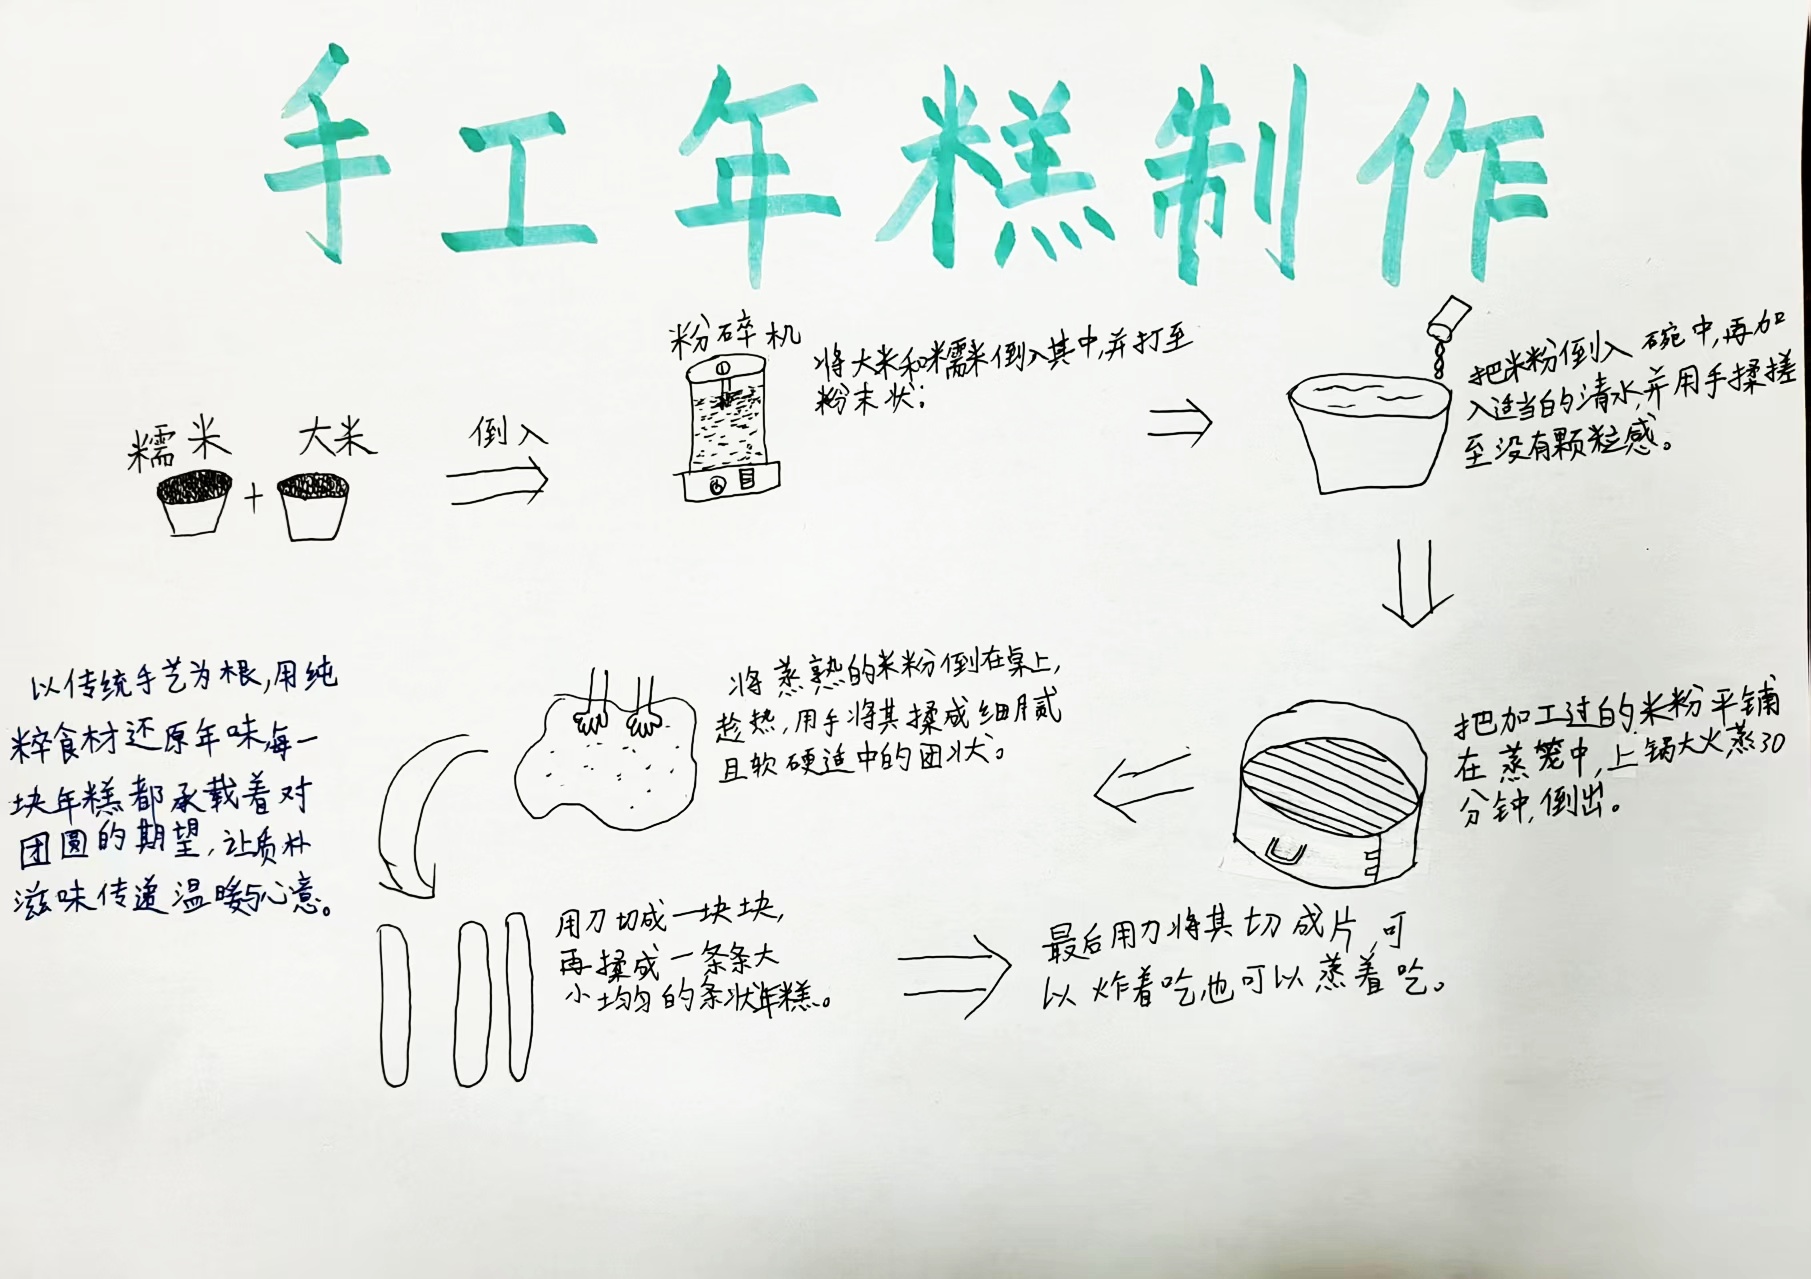 手工年糕制作
糯米
大米
倒入
粉碎机
将大米和糯米倒入其中,并打至
粉末状;
把米粉倒入碗中,再加
入适当的清水,并用手揉搓
至没有颗粒感。
把加工过的米粉平铺
在蒸笼中,上锅大火蒸30
分钟,倒出。
将蒸熟的米粉倒在桌上,
趁热,用手将其揉成细腻
且软硬适中的团状。
用刀切成一块块,
再揉成一条条大
小均匀的条状年糕。
最后用刀将其切成片,可
以炸着吃,也可以蒸着吃。
以传统手艺为根,用纯
粹食材还原年味,每一
块年糕都承载着对
团圆的期望,让质朴
滋味传递温暖与心意。